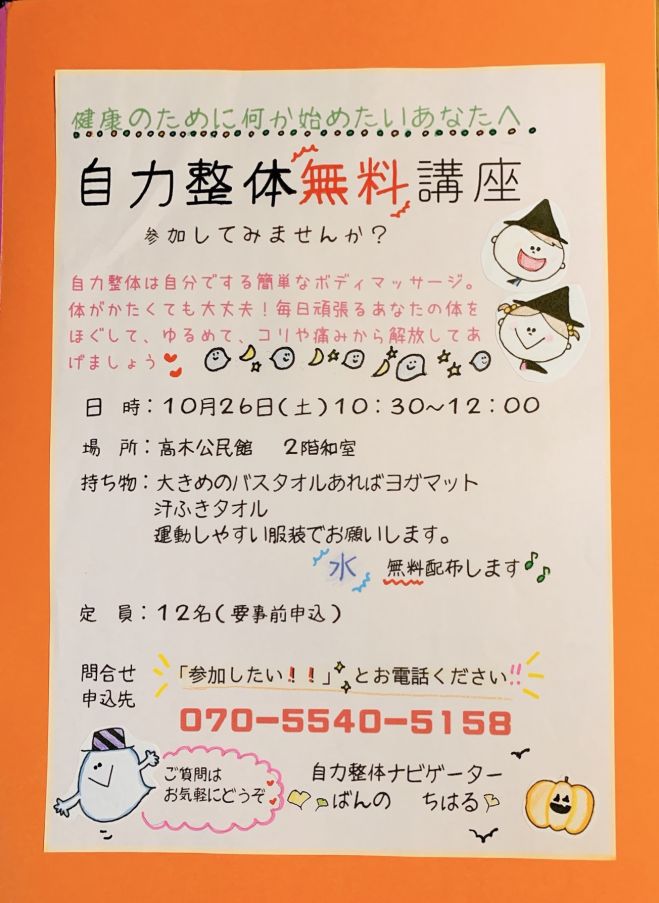 健康のために何か始めたいあなたへ
自力整体無料講座
参加してみませんか？
自力整体は自分でする簡単なボディマッサージ。
体がかたくても大丈夫！毎日頑張るあなたの体を
ほぐして、ゆるめて、コリや痛みから解放してあ
げましょう
日　時：10月26日(土)10：30～12：00
場　所：高木公民館　2階和室
持ち物：大きめのバスタオルあればヨガマット
汗ふきタオル
運動しやすい服装でお願いします。
水　無料配布します
定　員：12名(要事前申込)
問合せ
申込先
「参加したい！！」とお電話ください!!
070-5540-5158
ご質問は
お気軽にどうぞ
自力整体ナビゲーター
ばんの　ちはる